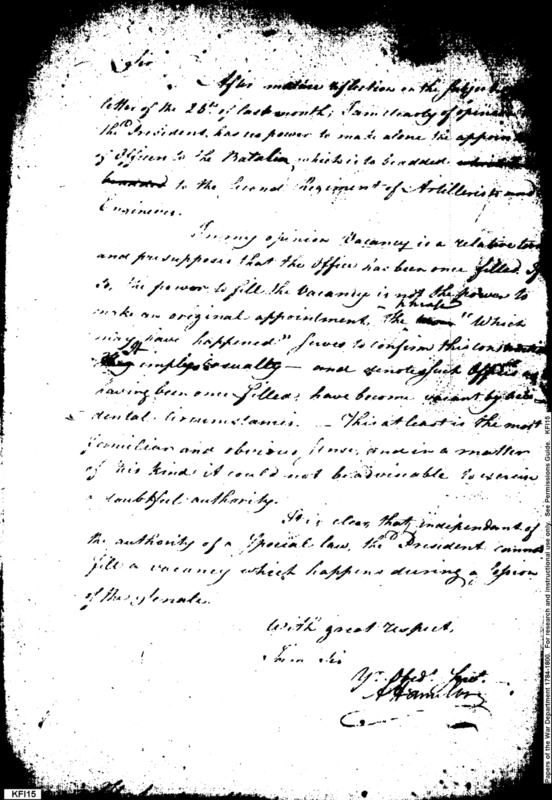 Sir
After mature reflection on the subject
letter of the 28th of last month; I am clearly of opinion
the President, has no power to make alone the appoint
of Officers to the Batalion, which is to be added
to the Second Regiment of Artillerists and
Engineers.
In my opinion Vacancy is a relative term
and presupposes that the office has been once filled. If
so, the power to fill the Vacancy is not the power to
make an original appointment. The phrase "Which
may have happened" serves to confirm this construction
It implys casualty — and denotes such Offices as
having been once filled, have become vacant by acci
dental Circumstances. — This at least is the most
familiar and obvious sense, and in a matter
of this kind it could not be adviseable to exercise
a doubtful authority.
It is clear, that independant of
the authority of a Special law, the President cannot
fill a vacancy which happens during a Session
of the Senate.
With great respect,
I am Sir
Yr. Obedt. Servt.
A Hamilton
KFI15
Papers of the War Department 1784-1800. For research and instructional use only. See Permissions Guide. KFI15